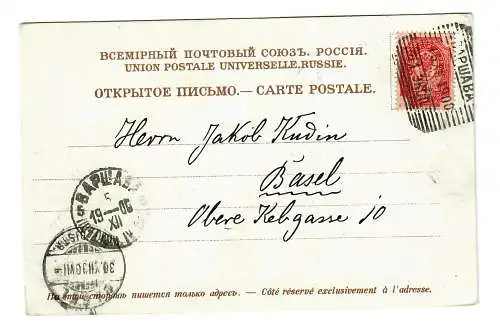 ВСЕМІРНЫЙ ПОЧТОВЫЙ СОЮЗЪ. РОССІЯ.
UNION POSTALE UNIVERSELLE. RUSSIE.
ОТКРЫТОЕ ПИСЬМО.— CARTE POSTALE.
ВАРШАВА
Herrn Jakob Kudin
Basel
Obere Rebgasse 10
ВАРШАВА
5
19—05
XII
30.XII.
На этой сторонѣ пишется только адресъ. — Côté réservé exclusivement à l'adresse.